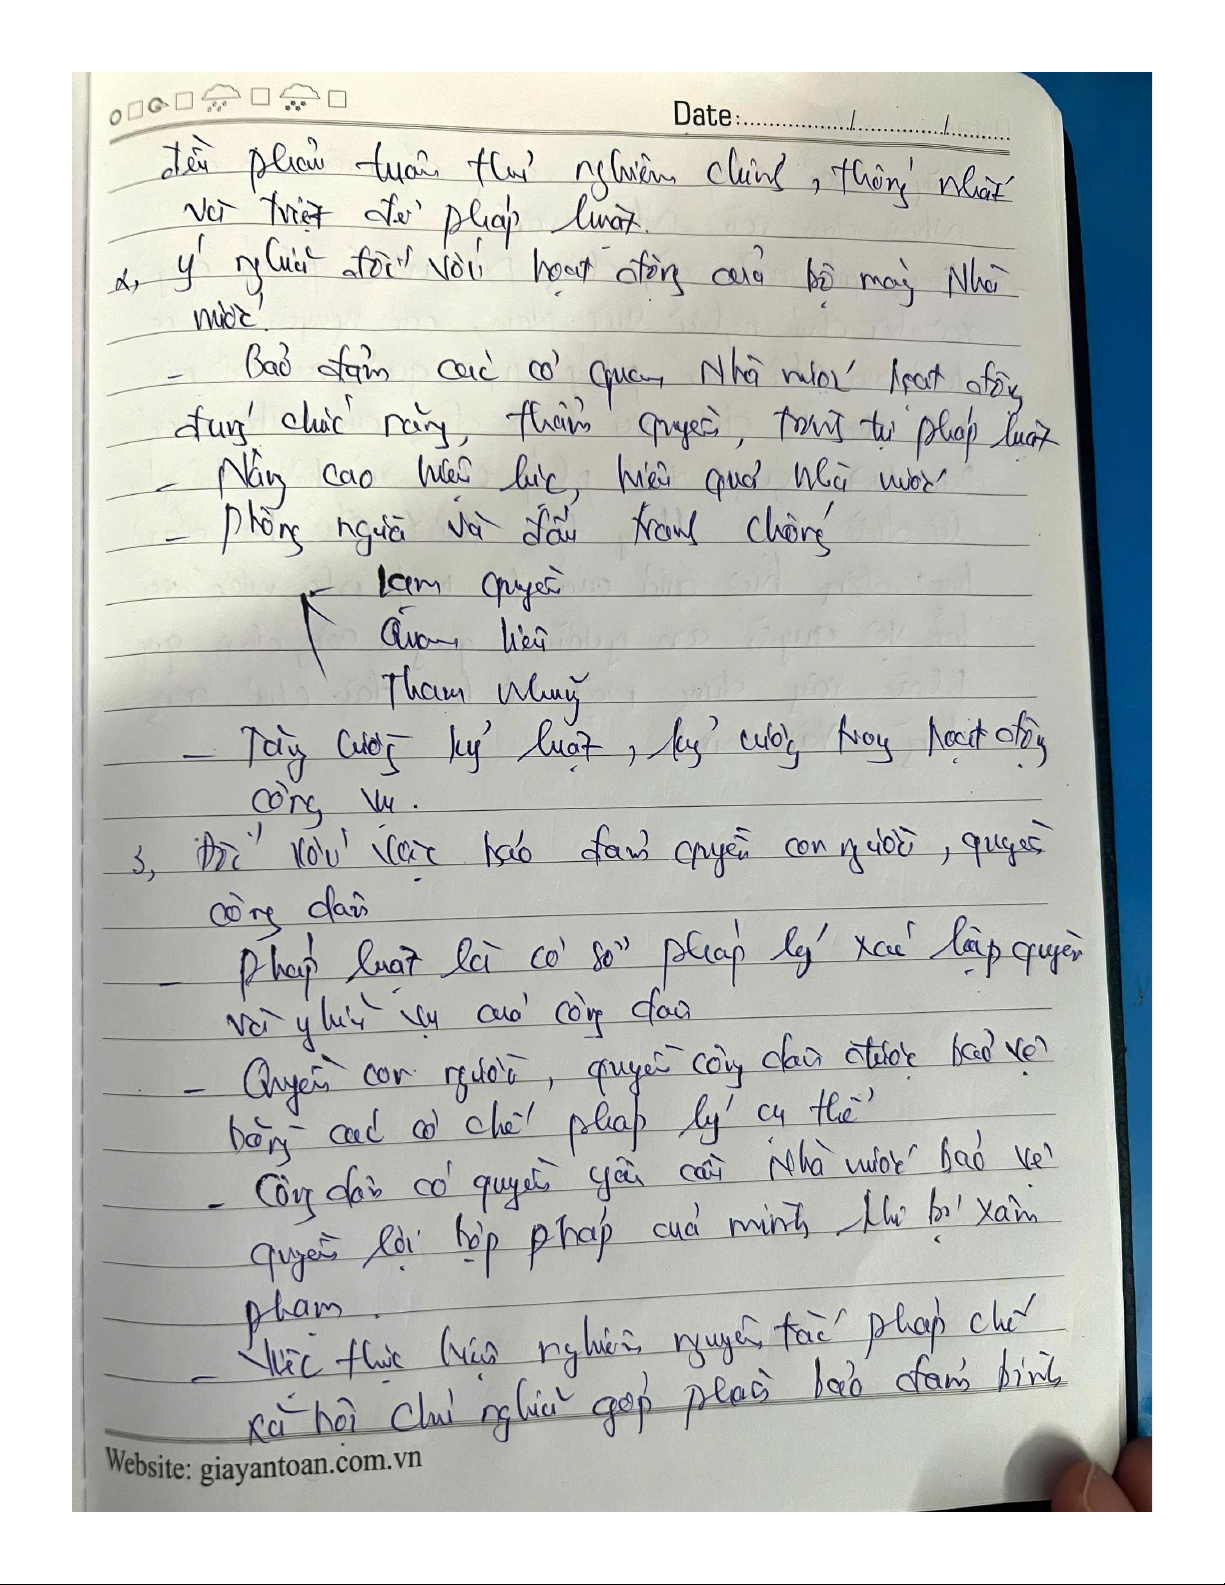 Date: ......../......../........
đều phải tuân thủ nghiêm chỉnh, thống nhất
và triệt để pháp luật.
2, Ý nghĩa đối với hoạt động của bộ máy Nhà
nước.
- Bảo đảm các cơ quan Nhà nước hoạt động
đúng chức năng, thẩm quyền, trình tự pháp luật
- Nâng cao hiệu lực, hiệu quả Nhà nước
- Phòng ngừa và đấu tranh chống
- Lạm quyền
Quan liêu
Tham nhũng
- Tăng cường kỷ luật, kỷ cương trong hoạt động
công vụ.
3, Đối với việc bảo đảm quyền con người, quyền
công dân
- Pháp luật là cơ sở pháp lý xác lập quyền
và nghĩa vụ của công dân
- Quyền con người, quyền công dân được bảo vệ
bằng các cơ chế pháp lý cụ thể
- Công dân có quyền yêu cầu Nhà nước bảo vệ
quyền lợi hợp pháp của mình khi bị xâm
phạm.
- Việc thực hiện nghiêm nguyên tắc pháp chế
xã hội chủ nghĩa góp phần bảo đảm bình
Website: giayantoan.com.vn